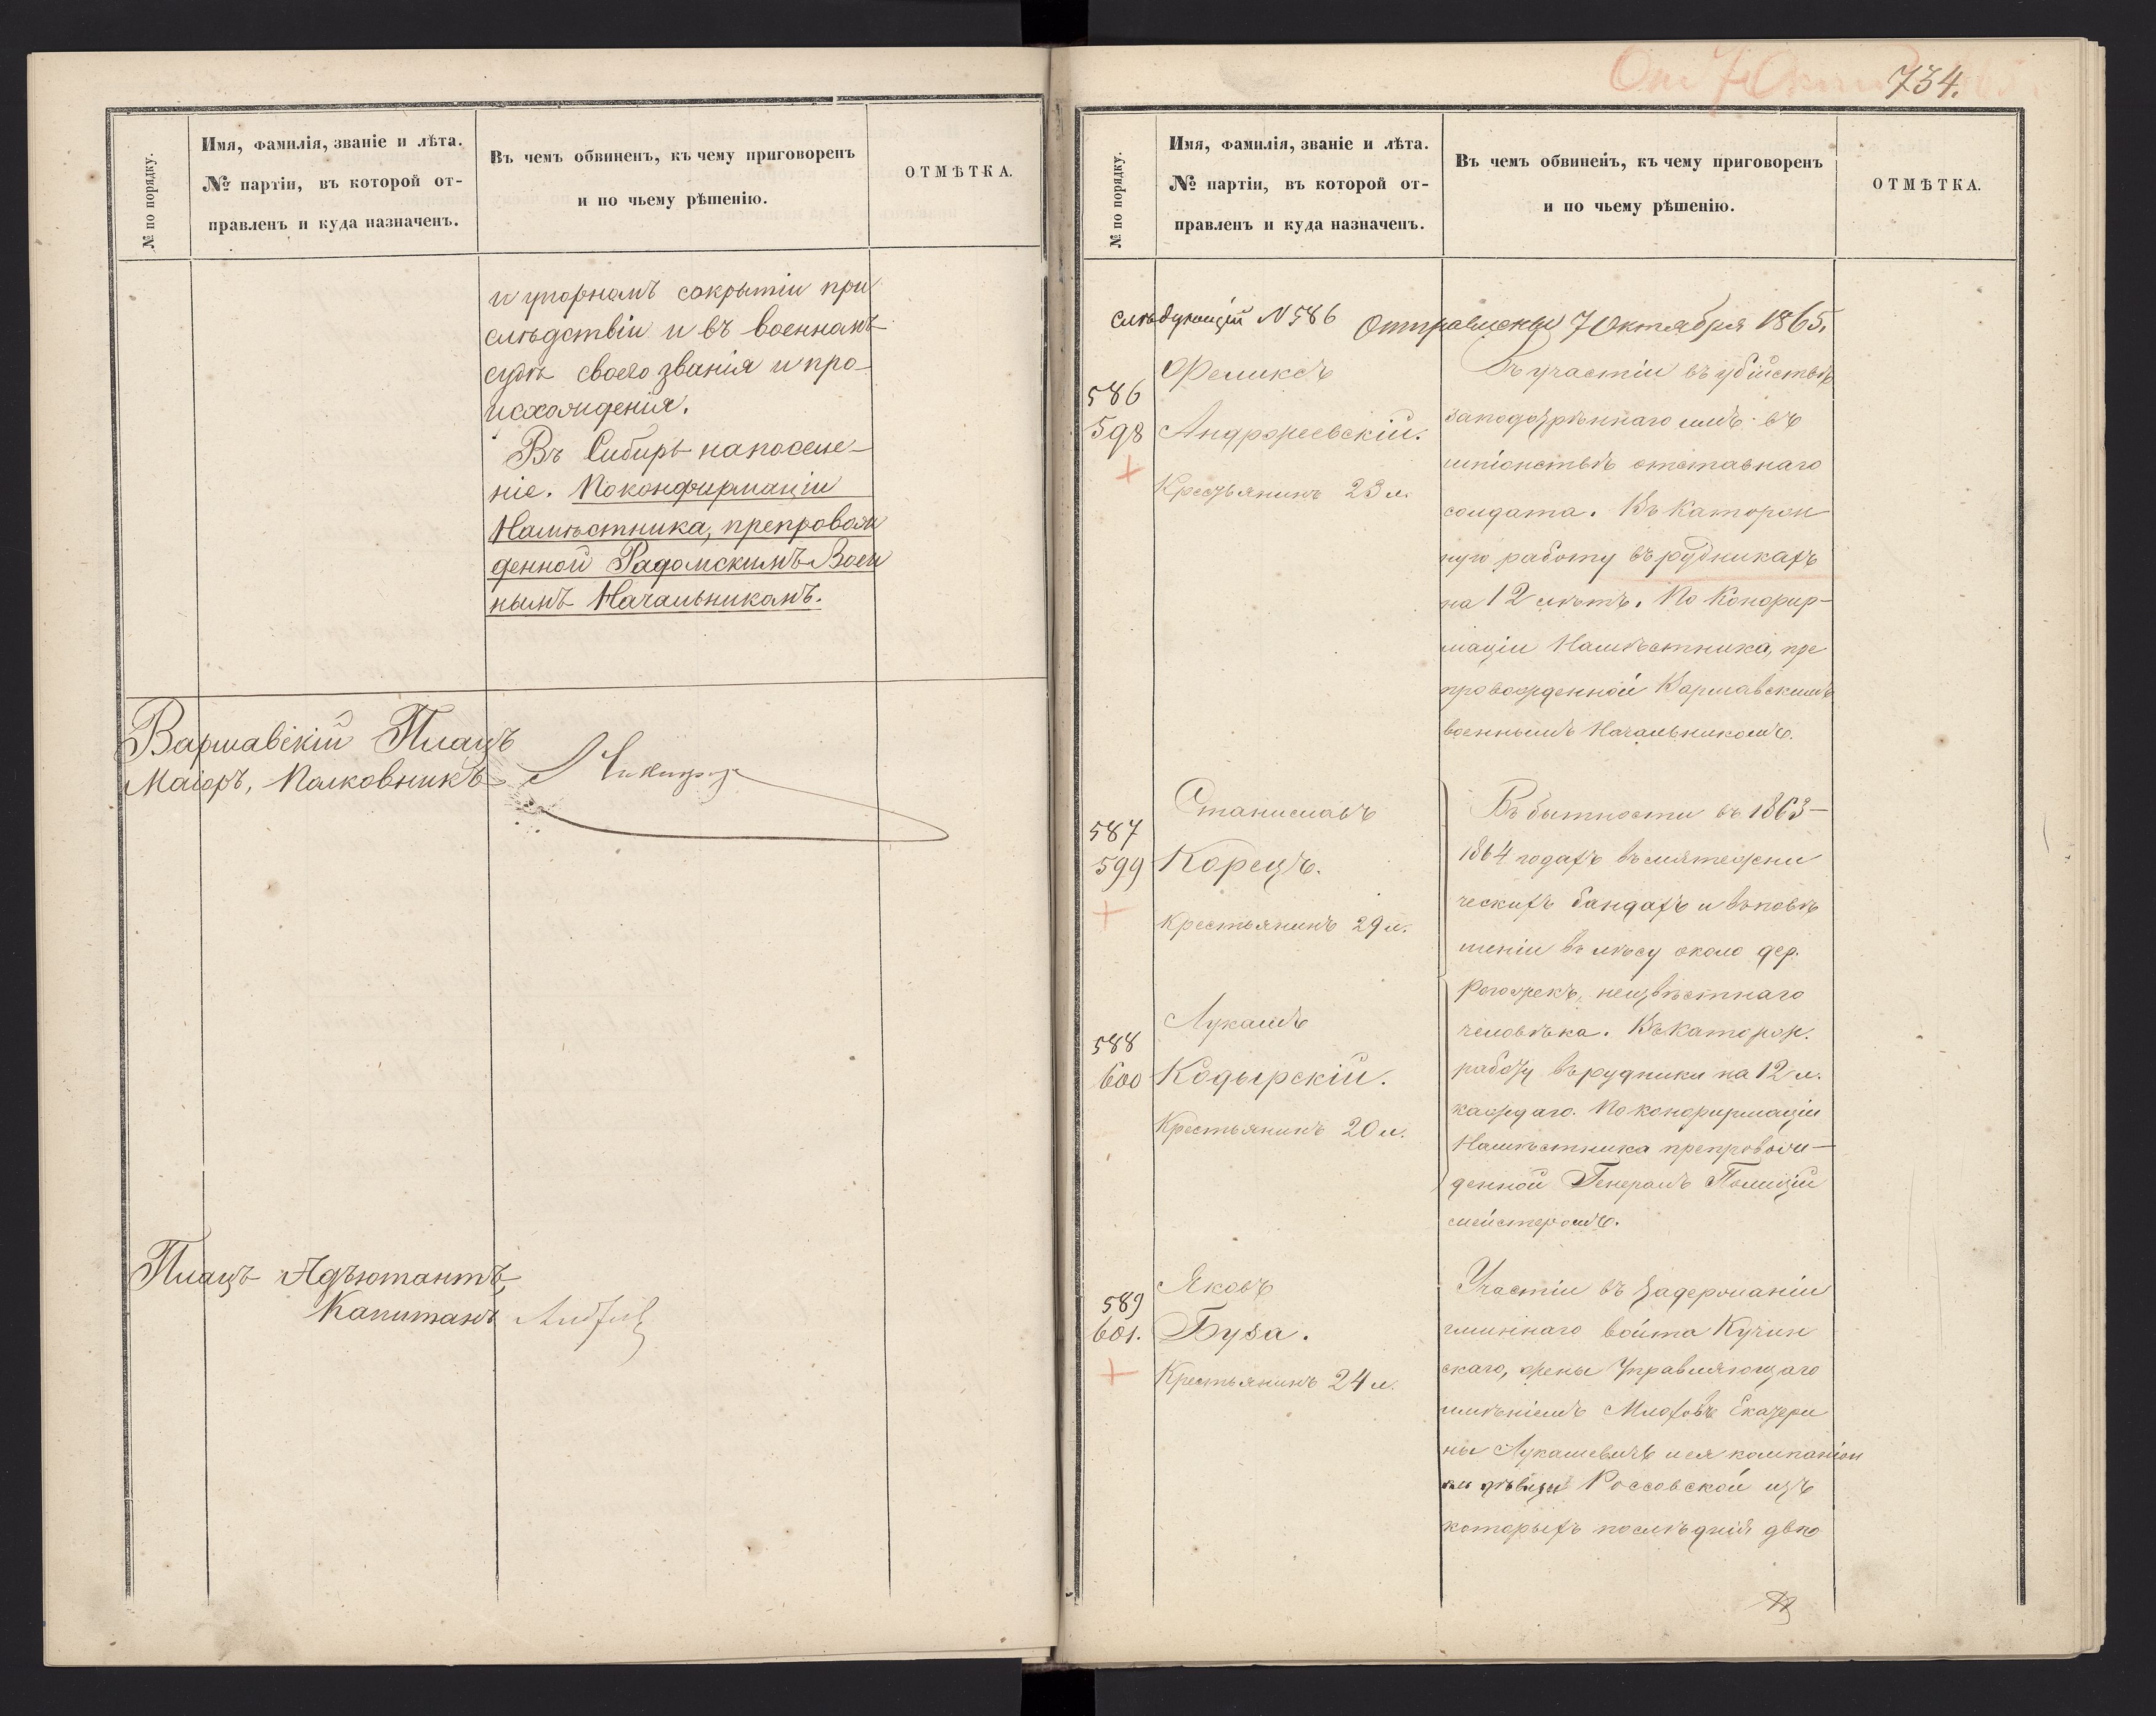 № по порядку.
Имя, фамилія, званіе и лѣта.
№ партіи, въ которой от-
правленъ и куда назначенъ.
Въ чемъ обвиненъ, къ чему приговоренъ
и по чьему рѣшенію.
ОТМѢТКА.
и упорномъ сокрытіи при
слѣдствіи и въ военномъ
судѣ своего званія и про-
исхожденія.
Въ Сибирь на поселе-
ніе. По конфирмаціи
Намѣстника, препровож
денной Радомскимъ Воен
нымъ Начальникомъ.
Варшавскій Плацъ
Маіоръ, Полковникъ
Плацъ Адъютантъ,
Капитанъ
734.
№ по порядку.
Имя, фамилія, званіе и лѣта.
№ партіи, въ которой от-
правленъ и куда назначенъ.
Въ чемъ обвиненъ, къ чему приговоренъ
и по чьему рѣшенію.
ОТМѢТКА.
слѣдующій N 586 Отправлены 7 Октября 1865.
586
598
Феликсъ
Андржеевскій.
Крестьянинъ 23 л.
Въ участіи въ убійствѣ
заподозрѣннаго имъ въ
шпіонствѣ отставнаго
солдата. Въ каторж
ную работу въ рудникахъ
на 12 лѣтъ. По Конфир-
маціи Намѣстника, пре
провожденной Варшавскимъ
военнымъ Начальникомъ.
587
599
Станиславъ
Корецъ.
Крестьянинъ 29 л.
588
600
Лукашъ
Кодырскій.
Крестьянинъ 20 л.
Въ бытности въ 1863-
1864 годахъ въ мятежни
ческихъ бандахъ и въ повѣ
шеніи въ лѣсу около дер.
Рогожекъ, неизвѣстнаго
человѣка. Въ каторж.
работу въ рудники на 12 л.
каждаго. По конфирмаціи
Намѣстника препровож-
денной Генералъ Полиціи
мейстеромъ.
589
601.
Яковъ
Буза.
Крестьянинъ 24 л.
Участіи въ задержаніи
гминнаго войта Кучин
скаго, жены Управляющаго
имѣніемъ Млоховъ Екатери
ны Лукашевичъ и ея компаніон
ки дѣвицы Россовской изъ
которыхъ послѣднія двѣ